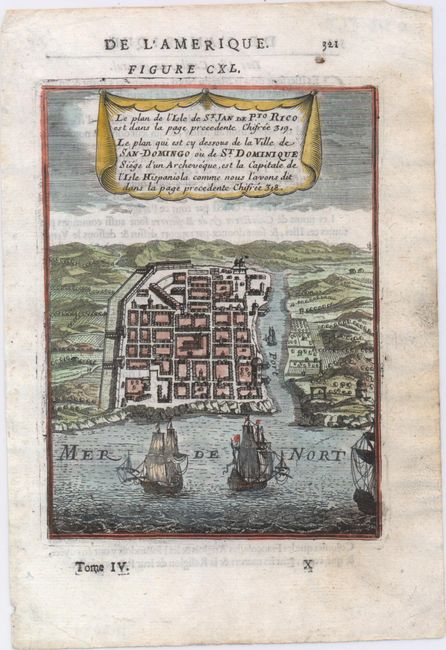 DE L'AMERIQUE. 321
FIGURE CXL.
Le plan de l'Isle de St. JAN DE Pto RICO
est dans la page precedente Chifrée 319.
Le plan qui est cy dessous de la Ville de
SAN-DOMINGO ou de St. DOMINIQUE
Siége d'un Archevêque, est la Capitale de
l'Isle Hispaniola comme nous l'avons dit
dans la page precedente Chifrée 318.
Port
MER DE NORT
Tome IV. X